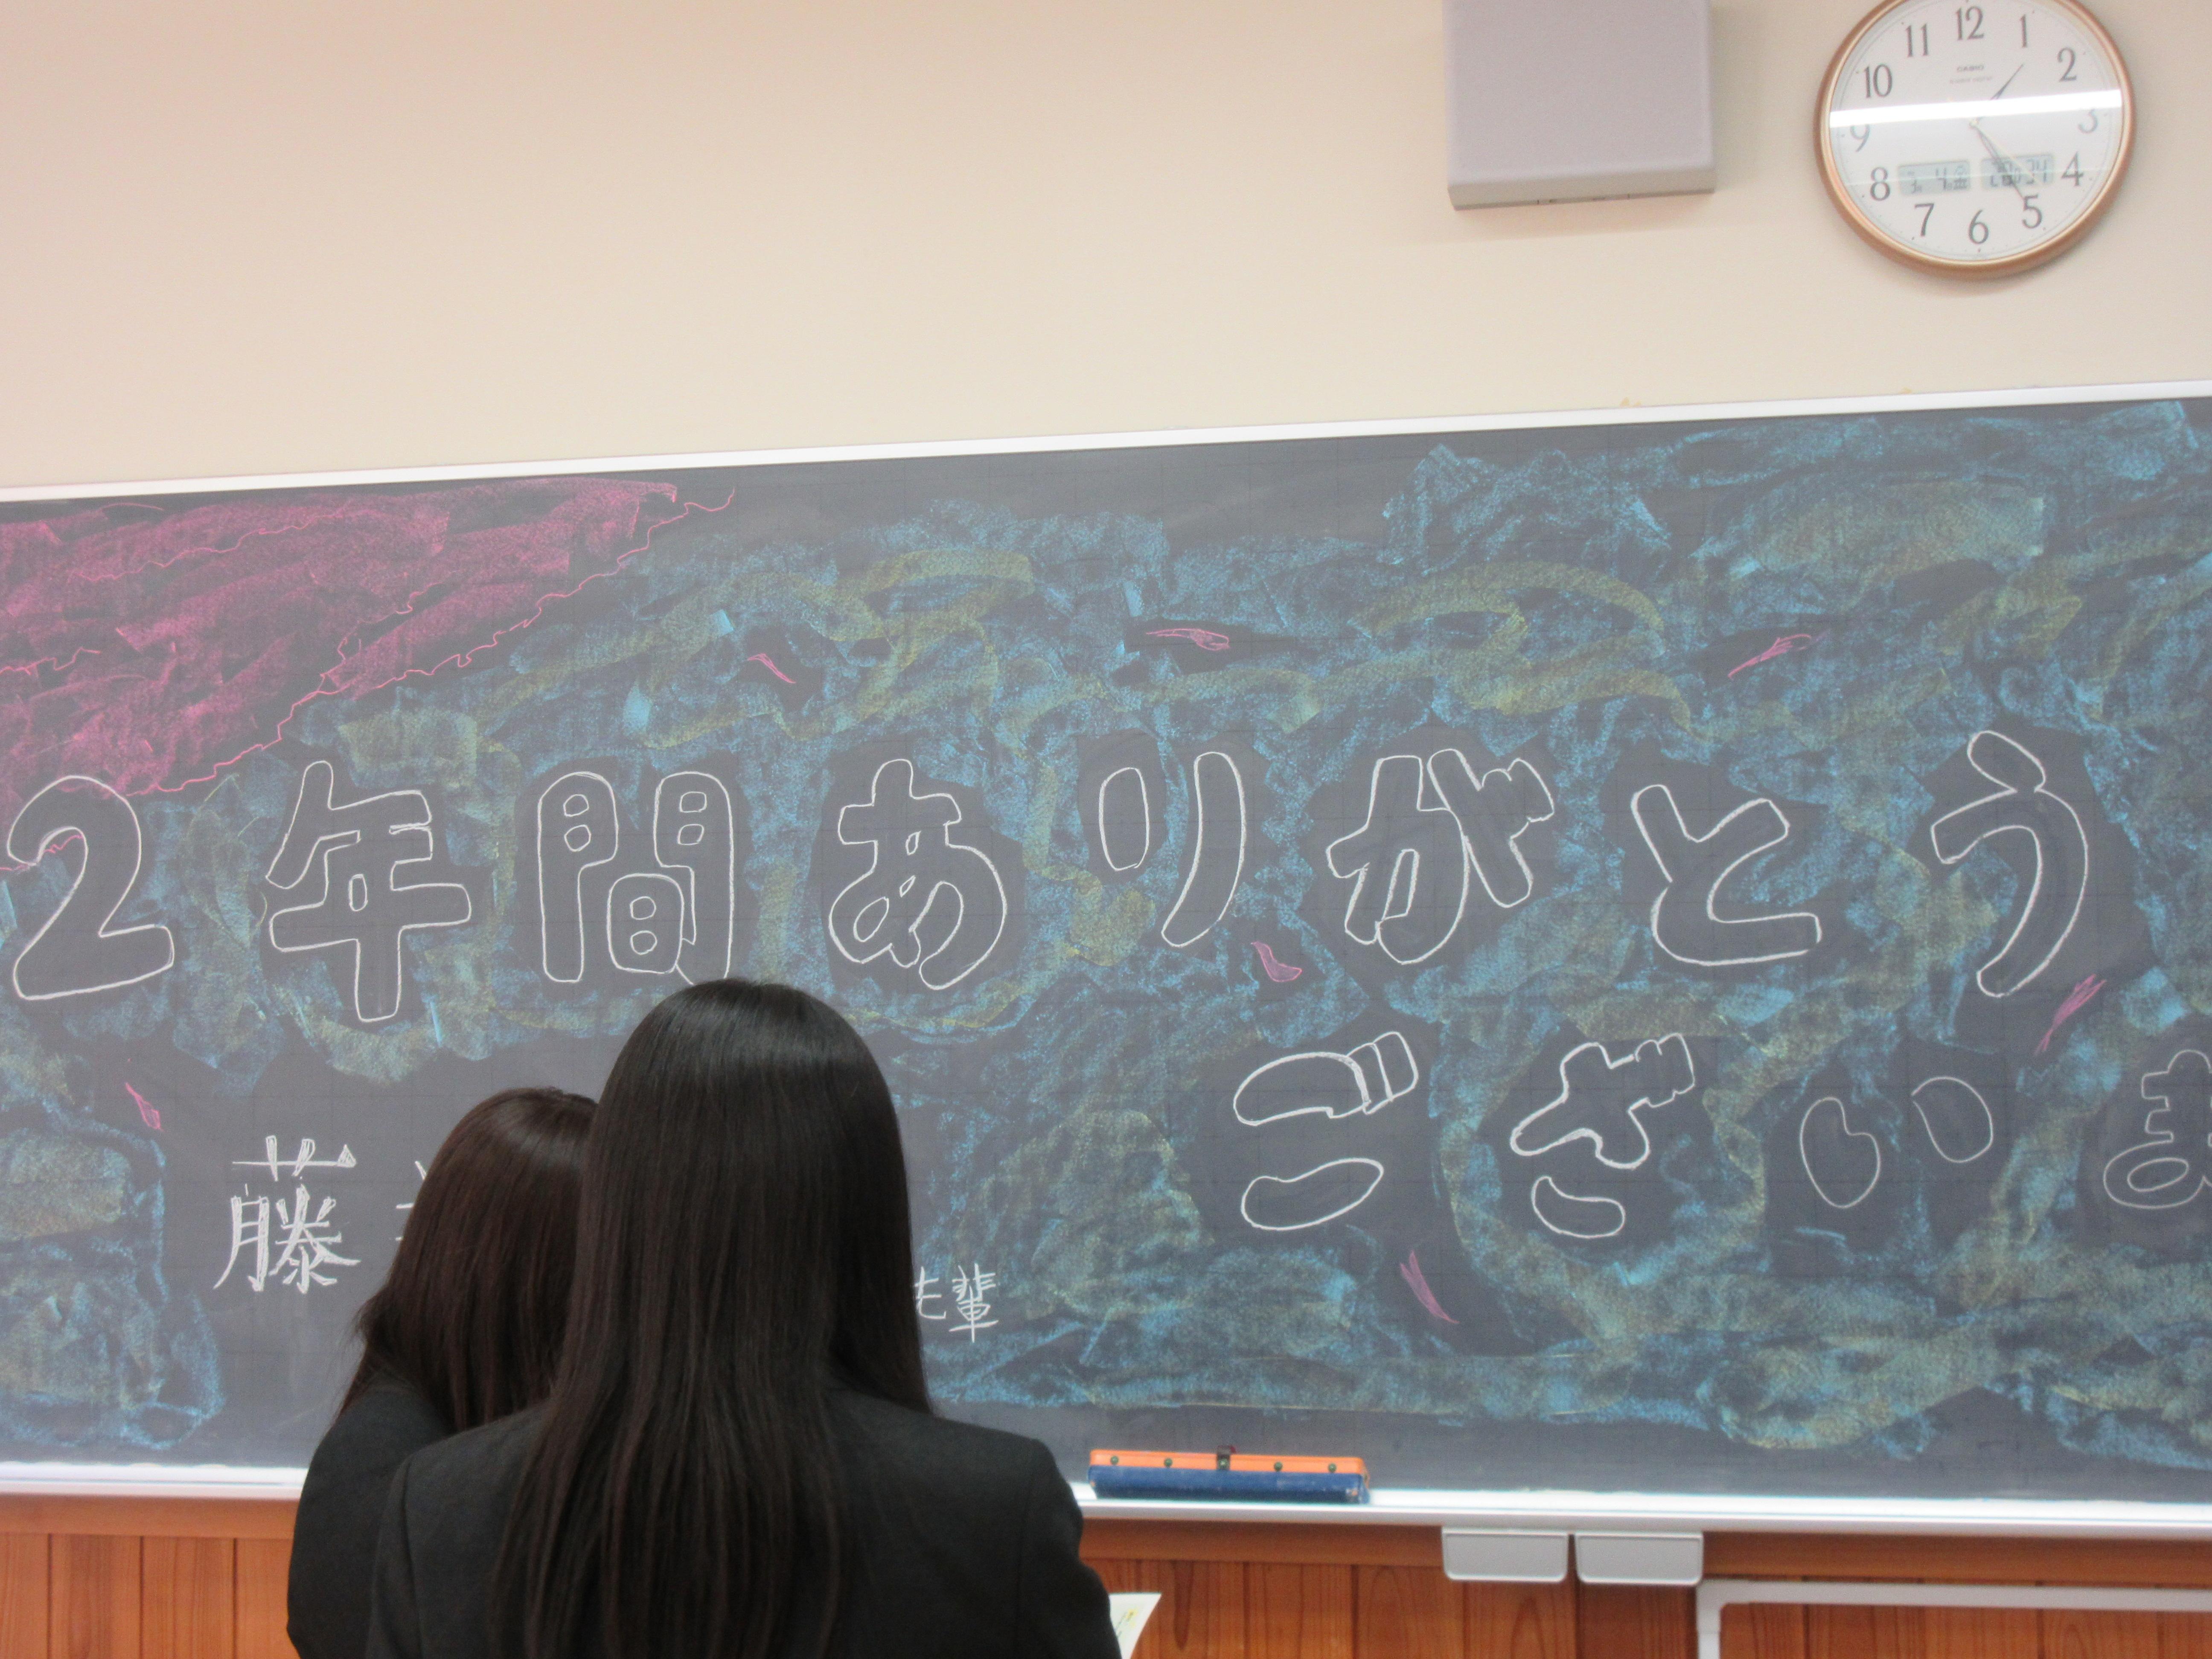 2年間ありがとう
ござい
藤
先輩
CASIO
12
1
2
3
4
5
6
7
8
9
10
11
3月 4日 金